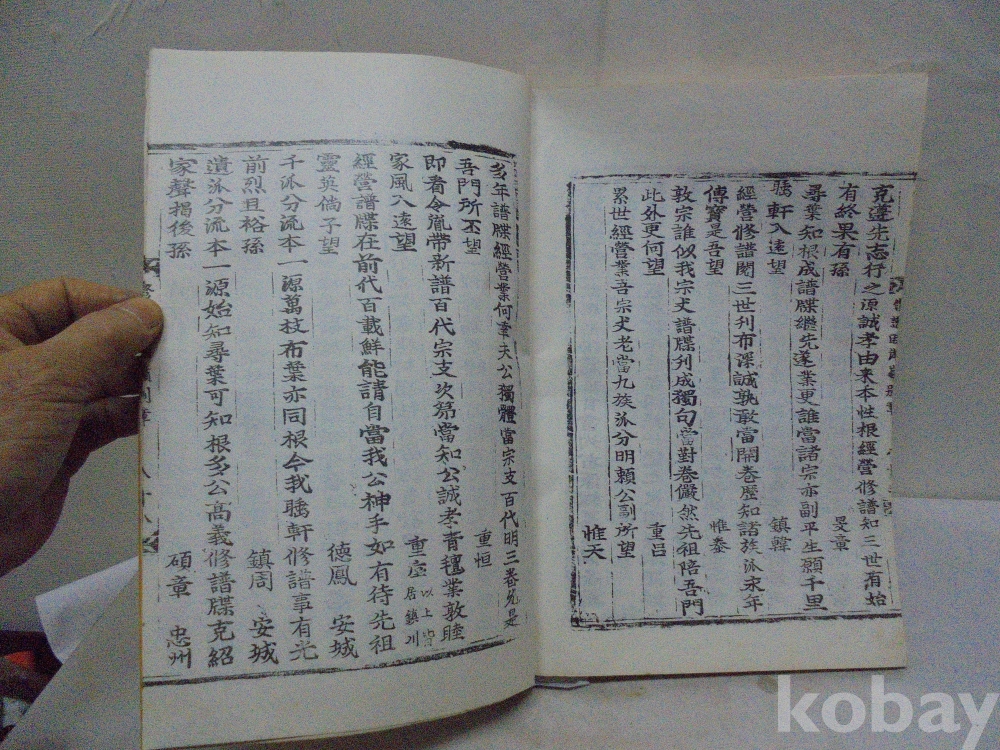 克遵先志行之源誠孝由来本性根經營修譜知三世有始
有終果有孫 旻章
尋業知根成譜牒繼先遂業更誰當諸宗亦副平生願千里
驕軒入遠望 鎮韓
經營修譜閱三世刋布深誠孰敢當開卷歷知諸族派永年
傳寶是吾望 惟泰
敦宗誰似我宗丈譜牒刋成獨句當對卷儼然先祖陪吾門
此外更何望 重呂
累世經營業吾宗丈老當九族派分明賴公副所望
惟天
多年譜牒經營業何幸夫公獨體當宗支百代明三卷允是
吾門所丕望 重恒
即看令胤帶新譜百代宗支次第當知公誠孝青氊業敦睦
家風入遠望 重 以上皆居鎮川
經營譜牒在前代百載鮮能請自當我公神手如有待先祖
靈英倘子望 德鳳 安城
千派分流本一源萬枝布葉亦同根今我驕軒修譜事有光
前烈且裕孫 鎮周 安城
遺派分流本一源始知尋葉可知根多公高義修譜牒克紹
家聲揭後孫 碩章 忠州
八十八
kobay